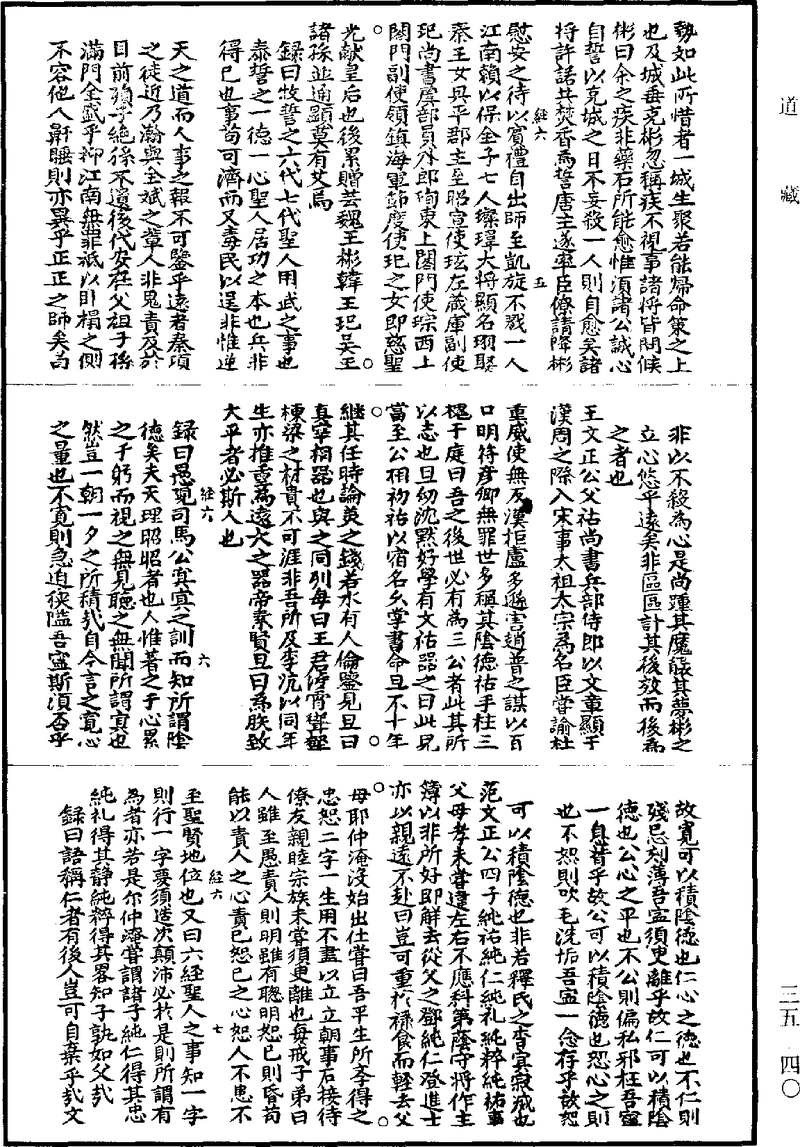 道藏
勢如此所惜者一城生聚若能歸命策之上
也及城垂克彬忽稱疾不視事諸將皆問候
彬曰余之疾非藥石所能愈惟須諸公誠心
自誓以克城之日不妄殺一人則自愈矣諸
將許諾共焚香為誓唐主遂率臣僚請降彬
経六 五
慰安之待以賓禮自出師至凱旋不戮一人
江南賴以保全子七人璨璋大將顯名珝娶
秦王女興平郡主至昭宣使玹左藏庫副使
玘尚書虞部員外郎珣東上閤門使琮西上
閤門副使領鎮海軍節度使玘之女即慈聖
光獻皇后也後累贈芸魏王彬韓王玘吳王
諸孫並通顯莫有艾焉
錄曰牧誓之六代七代聖人用武之事也
泰誓之一德一心聖人居功之本也兵非
得已也事苟可濟而又毒民以逞非惟逆
天之道而人事之報不可鑒乎遠者秦項
之徒近乃瀚與全斌之輩人非鬼責及於
目前殞子絕孫不遺後代安在父祖子孫
滿門全盛乎抑江南無罪祇以臥榻之側
不容他人鼾睡則亦異乎正正之師矣苟
非以不殺為心是尚踵其魔其夢彬之
立心悠乎遠矣非區區計其後效而後為
之者也
王文正公父祐尚書兵部侍郎以文章顯于
漢周之際入宋事太祖太宗為名臣嘗諭杜
重威使無反漢拒盧多遜害趙普之謀以百
口明符彥卿無罪世多稱其陰德祐手植三
槐于庭曰吾之後世必有為三公者此其所
以志也旦幼沈默好學有文祐器之曰此兒
當至公相初祐以宿名久掌書命旦不十年
繼其任時論美之錢若水有人倫鑒見旦曰
真宰相器也與之同列每曰王君凌霄聳壑
棟梁之材貴不可涯非吾所及李沆以同年
生亦推重為遠大之器帝素賢旦曰為朕致
太平者必斯人也
経六 六
錄曰愚觀司馬公冥冥之訓而知所謂陰
德矣夫天理昭昭者也人惟著之于心累
之于躬而視之無見聽之無聞所謂冥也
然豈一朝一夕之所積哉自今言之寬心
之量也不寬則急迫狹隘吾寧斯須否乎
故寬可以積陰德也仁心之德也不仁則
殘忌刻薄吾寧須臾離乎故仁可以積陰
德也公心之平也不公則偏私邪枉吾寧
一息替乎故公可以積陰德也恕心之則
也不恕則吹毛洗垢吾寧一念存乎故恕
可以積陰德也非若釋氏之杳冥寂滅也
范文正公四子純祐純仁純礼純粹純祐事
父母孝未嘗違左右不應科第蔭守將作主
簿以非所好即解去從父之鄧純仁登進士
亦以親遠不赴曰豈可重於祿食而輕去父
母耶仲淹沒始出仕嘗曰吾平生所學得之
忠恕二字一生用不盡以立立朝事君接待
僚友親睦宗族未嘗須臾離也每戒子弟曰
人雖至愚責人則明雖有聰明恕已則昏苟
能以責人之心責已恕已之心恕人不患不
経六 七
至聖賢地位也又曰六經聖人之事知一字
則行一字要須造次顛沛必於是則所謂有
為者亦若是尔仲淹嘗謂諸子純仁得其忠
純礼得其靜純粹得其畧知子孰如父哉
錄曰語稱仁者有後人豈可自棄乎哉文
三五 四〇